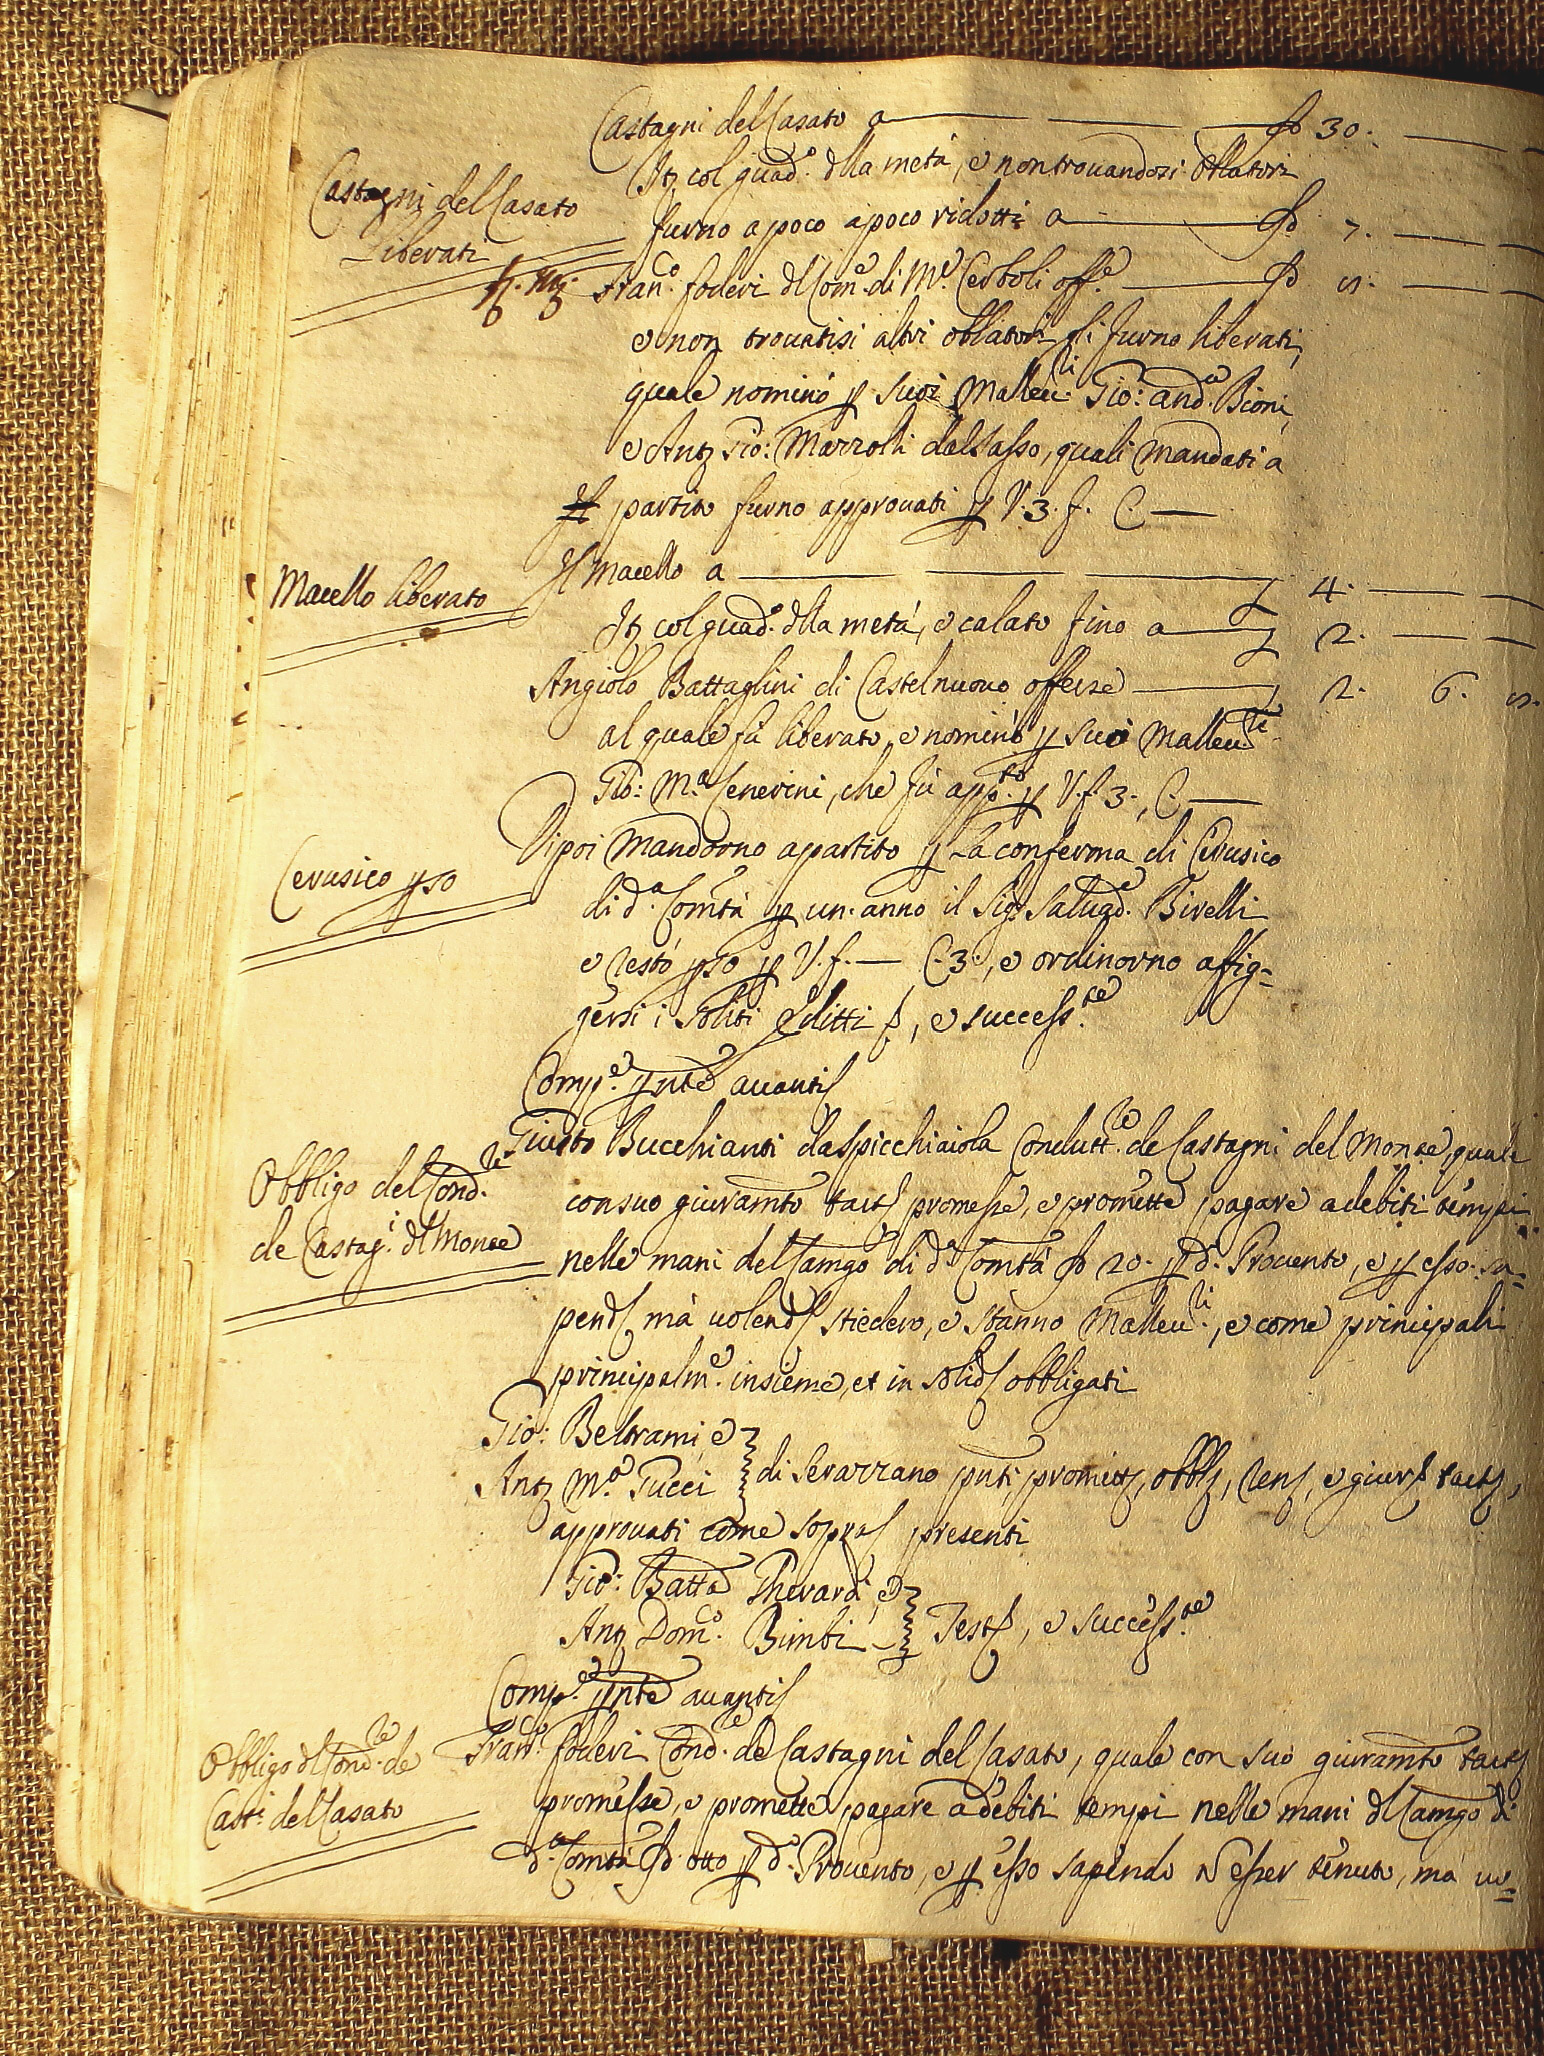 Castagni del Casato a — — 30. —
Castagni del Casato
Liberati
Itz col guad.º dlla metà, e non trouandosi oblatori
furno a poco a poco ridotti a — 7. —
Fran.co foderi dl Com.e di M.e Cerboli off.e —
e non trouatisi altri oblatori gli furno liberati,
quale nominò p suoi Malleu.ri Gio: And.a Bioni,
e Antº Gio: Marzolli dal Sasso, quali mandati a
partito furno approuati p V. 3. f. C. —
Macello liberato
Il Macello a — — — 4. —
Itz col guad.º dlla metà, e calato fino a — 2. —
Angiolo Battaglini di Castelnuouo offerse — 2. 6.
al quale fù liberato, e nominò p suoi Malleu.ri
Gio: M.a Cenerini, che fù app.to p V. f. 3., C. —
Cerusico pso
Dipoi Mandorno a partito p La conferma di Cerusico
di d.a Comtà p un. anno il Sig.r Saluad.e Birelli
e restò pso p V. f. — C. 3., e ordinorno affig=
gersi i soliti Editti, e success.te
Comp.e pnte auanti
Obbligo del Cond.re
de Castag.i dl Monte
Giusto Bucchianti da Spicchiaiola Condutt.re de Castagni del Monte, quale
con suo giuramto promesse, e promette pagare a debiti tempi
nelle mani del Camgo di d.a Comtà 20. p d.º Prouento, e p esso sa=
pend mà uolend stiedero, e stanno Malleu.ri, e come principali
principalm.e insieme, et in solid obbligati
Gio: Beltrami, e
Antº M.a Gucci di Serazzano pnti, promett, obblº, renº, e giurº tactº,
approuati come sopra presenti
Gio: Batta Gherardi, e
Antº Dom.co Bimbi Test, e success.te
Comp.e pnte auanti
Obbligo dl Cond.re de
Cast.i del Casato
Fran.co foderi Cond.re de Castagni del Casato, quale con suo giuramto
promesse, e promette pagare a debiti tempi nelle mani dl Camgo di
d.a Comtà otto p d.º Prouento, e p esso sapendo esser tenuto, ma uo=